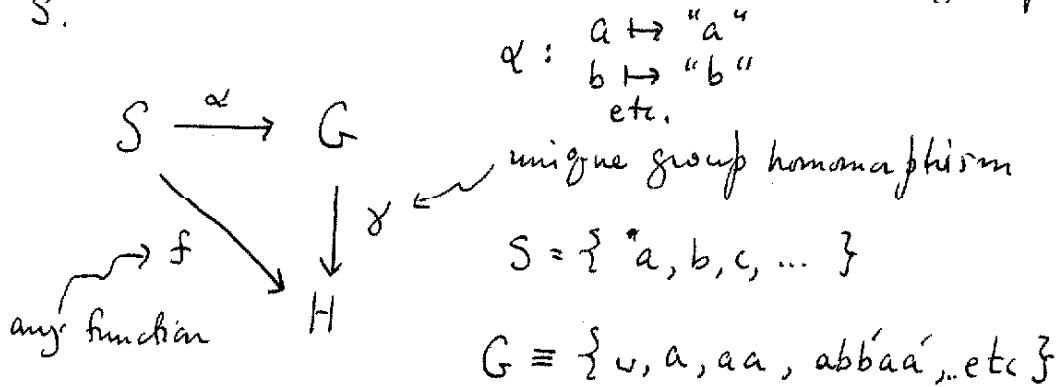 S.
α : a ↦ "a"
b ↦ "b"
etc.
S α G
unique group homomorphism
γ
f
S = { a, b, c, ... }
any function
H
G ≡ { υ, a, aa, abb'aa', .. etc }